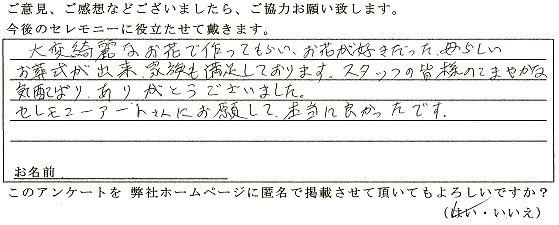 ご意見、ご感想などございましたら、ご協力お願い致します。
今後のセレモニーに役立たせて戴きます。
大変綺麗なお花で作ってもらい、お花が好きだった母らしい
お葬式が出来、家族も満足しております。スタッフの皆様のこまやかな
気配り、ありがとうございました。
セレモニーアートさんにお願して、本当に良かったです。
お名前
このアンケートを 弊社ホームページに匿名で掲載させて頂いてもよろしいですか？
（はい・いいえ）